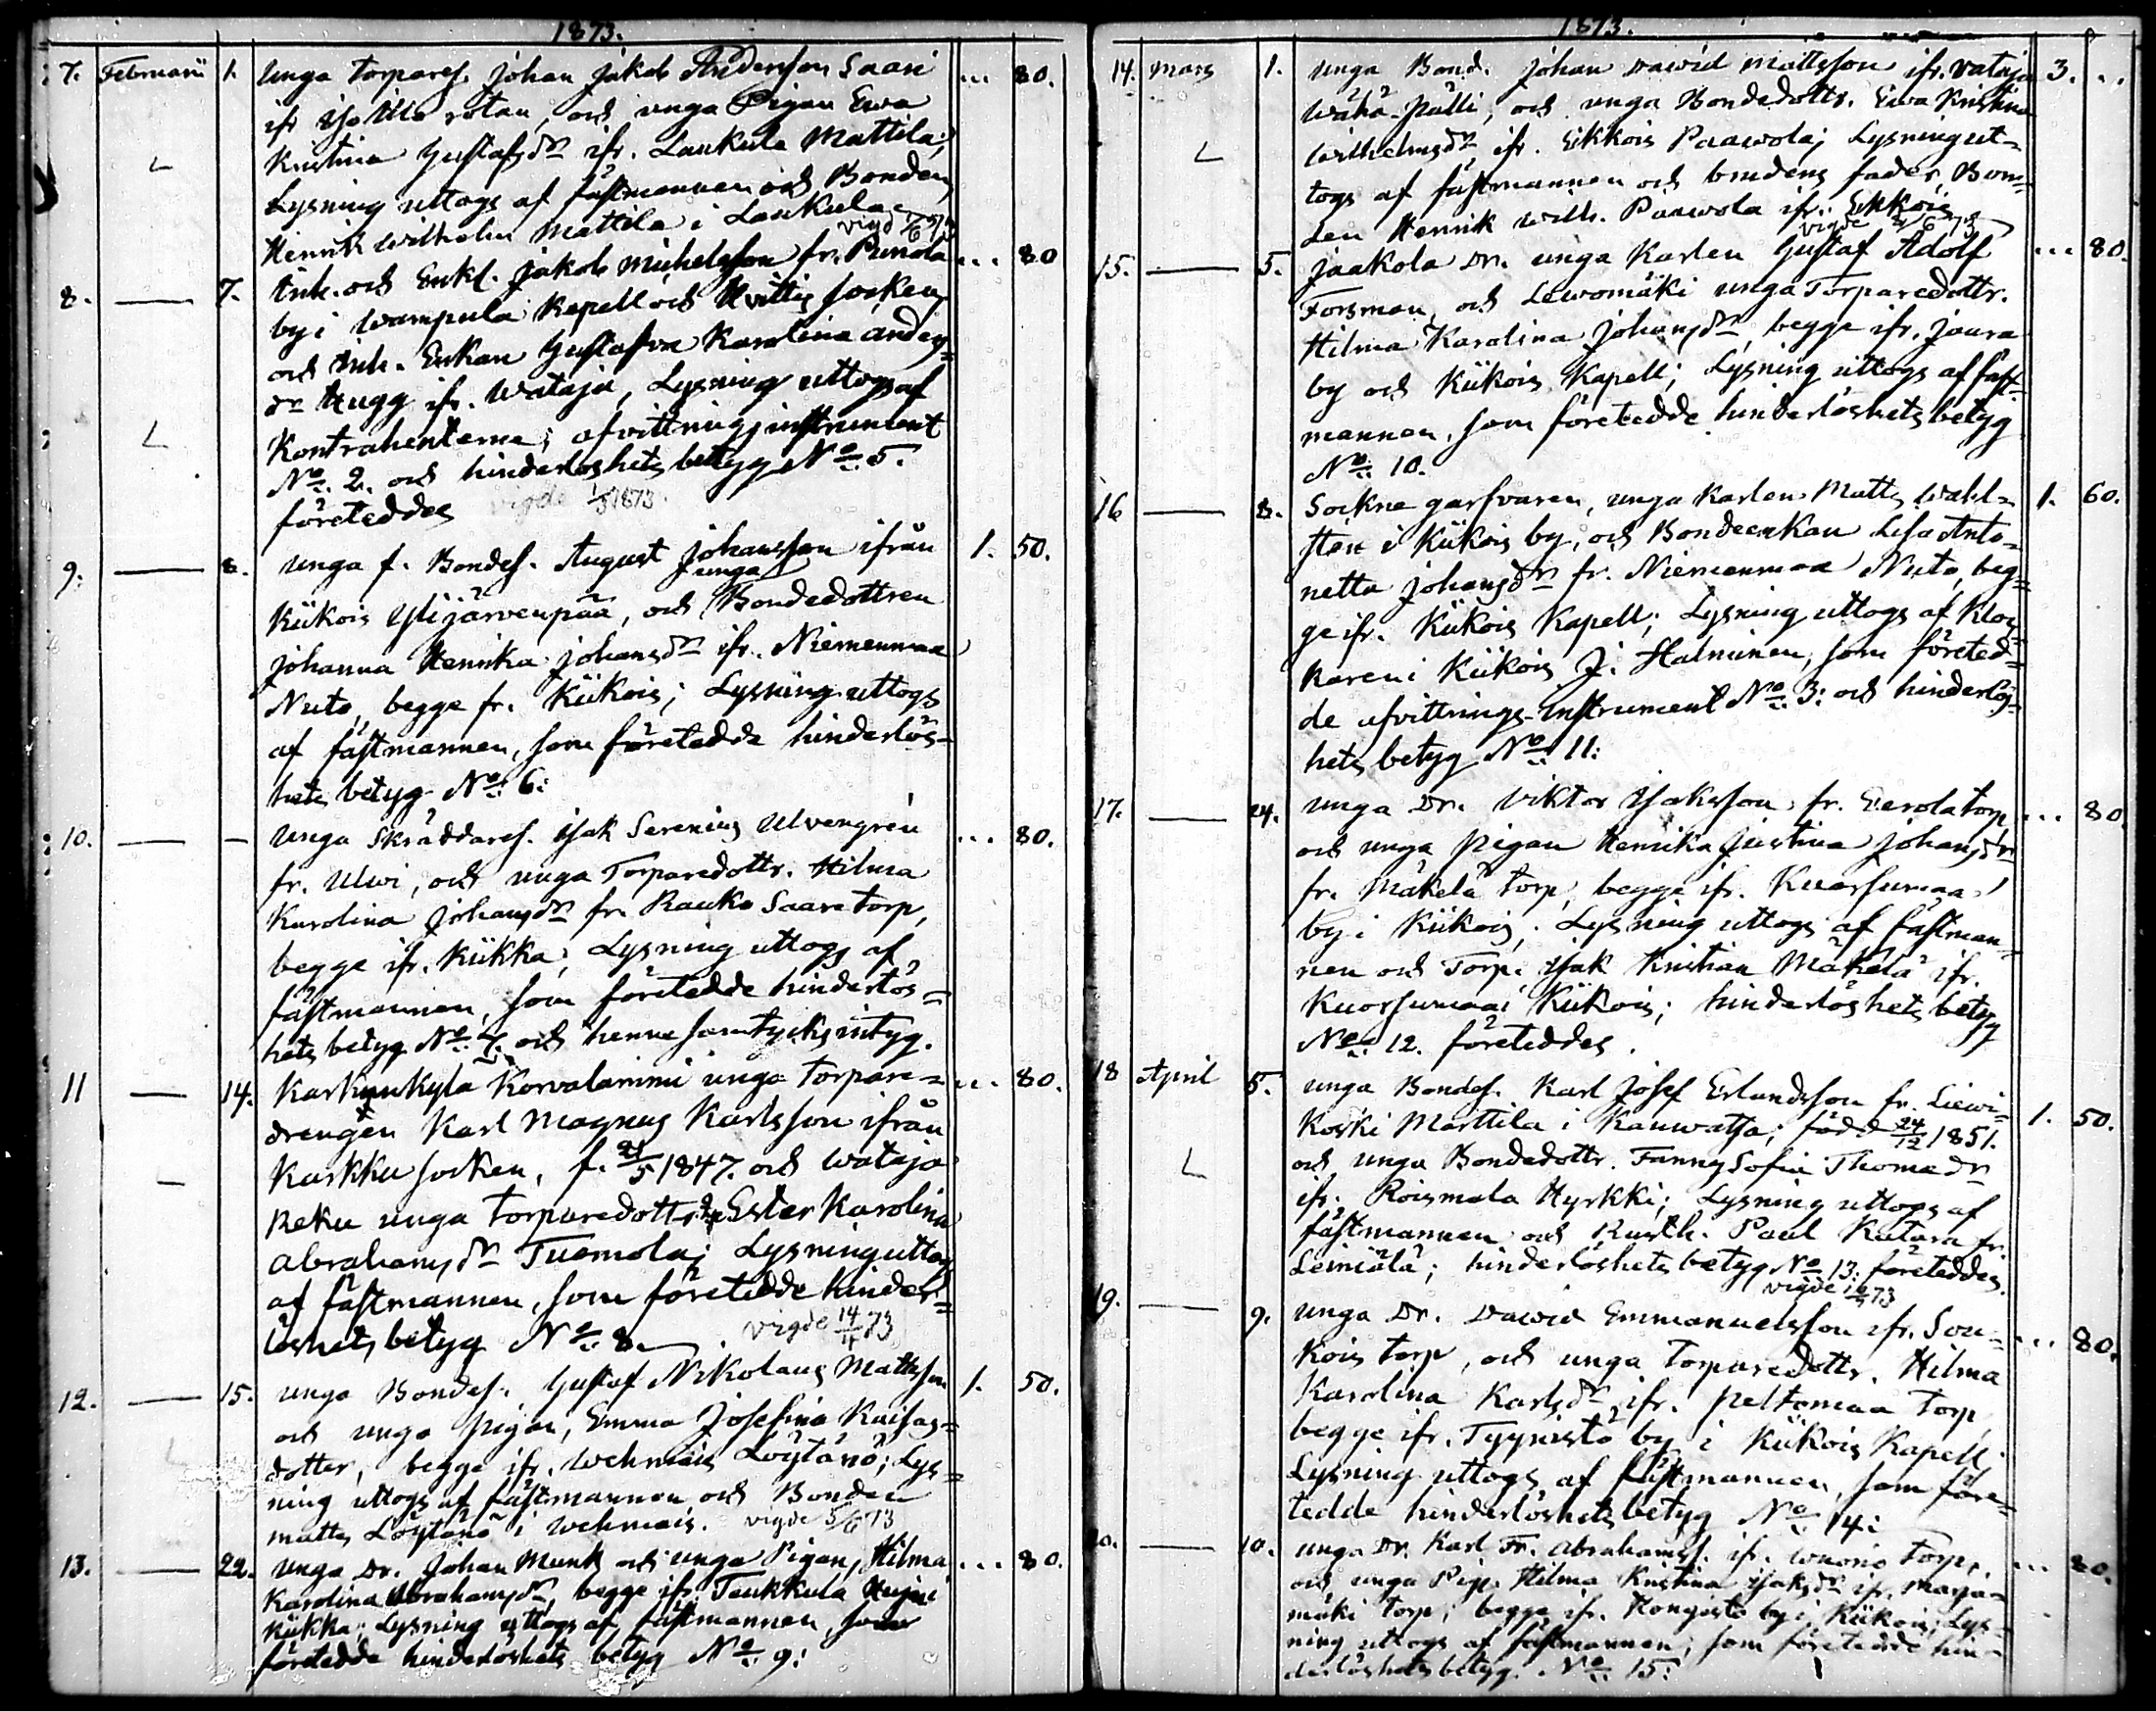 1873.
7. Februarii 1. Unga torpares. Johan Jakob Andersson Saari ... 80.
ifr Iso Ulla rotan, och unga Pigan Ewa
Kristina Gustafsdr ifr. Laukula Mattila;
Lysning uttogs af fästmannen och Bonden
Henrik Wilhelm Mattila i Laukula.
8. — 7. Inh. och Enkl. Jakob Michelsson fr. Punola ... 80
by i Wampula Kapell och Hvittis socken,
och Inh. Enkan Gustafva Karolina Anders=
dr Hugg ifr. Wataja, Lysning uttogs af
Kontrahenterne; afvittringsinstrument
No: 2. och hinderlöshets betyg No: 5.
företeddes vigde 1/5 1873.
9. — 8. Unga f. Bondes. August Johansson ifrån 1. 50.
unga
Kiikois Ylijärvenpää, och Bondedottren
Johanna Henrika Johansdr ifr. Niemenmaa
Nuto, begge fr. Kiikois; Lysning uttogs
af fästmannen, som företedde hinderlös=
hets betyg No: 6:
10. — — Unga Skräddares. Isak Serenius Ulvengrén ... 80.
fr. Ulwi, och unga Torparedottr. Hilma
Karolina Johansdr fr. Rauko Saare torp,
begge ifr. Kiikka; Lysning uttogs af
fästmannen, som företedde hinderlös=
hets betyg No: 7. och henne samtycks intyg.
11 — 14. Karkunkylä Korvalammi unga torpare= ... 80.
drengen Karl Magnus Karlsson ifrån
Karkku socken, f. 21/5 1847. och Wataja
Reku unga torparedottr. Ester Karolina
Abrahamsdr Tuomola; Lysning uttogs
af fästmannen, som företedde hinder=
löshets betyg No: 8. vigde 14/4 73
12. — 15. Unga Bondes. Gustaf Nikolaus Mattsson 1. 50.
och unga pigan, Emma Josefina Kaisas=
dotter, begge ifr. Wehmais Löytänö; Lys=
ning uttogs af fästmannen och Bonden
Matts Löytänö i Wehmais. vigde 5/6 73
13. — 22. Unga Dr. Johan Munk och unga Pigan, Hilma ... 80.
Karolina Abrahamsdr, begge ifr. Taukkula
Kiikka; Lysning uttogs af fästmannen, som
företedde hinderlöshets betyg No: 9:
1873.
14. Mars 1. Unga Bond. Johan Dawid Mattsson ifr. Wataja 3. ..
Wähä-Pälli, och unga Bondedottr. Ewa Kristina
Wilhelmsdr ifr. Ekkois Paawola; Lysning ut=
togs af fästmannen och brudens fader, Bon=
den Henrik Wilh. Paawola ifr. Ekkois
15. — 5. Jaakola Dr. unga Karlen Gustaf Adolf ... 80.
Forsman, och Lewomäki unga Torparedottr.
Hilma Karolina Johansdr, begge ifr. Jaara
by och Kiikois Kapell; Lysning uttogs af fäst=
mannen, som företedde hinderlöshets betyg
No: 10.
16 — 8. Sockne garfvaren, unga Karlen Matts Wahl= 1. 60.
stén i Kiikois by, och Bondeenkan Lisa Anto=
netta Johansdr fr. Niemenmaa Nuto, beg=
ge ifr. Kiikois Kapell; Lysning uttogs af Kloc=
karen i Kiikois J. Halminen, som företed=
de afvittrings-Instrument No: 3: och hinderlös=
hets betyg No: 11:
17. — 24. Unga Dr. Viktor Isaksson fr. Eerola torp ... 80.
och unga pigan Henrika Justina Johansdr
fr. Mäkelä torp, begge ifr. Kuorsumaa
by i Kiikois; Lysning uttogs af fästman=
nen och Torp. Isak Kristian Mäkelä ifr.
Kuorsumaa Kiikois; hinderlöshets betyg
No: 12. företeddes.
18 April 5. Unga Bondes. Karl Josef Erlandsson fr. Liewi= 1. 50.
koski Marttila i Kauwatsa; född 24/12 1851.
och unga Bondedottr. Fanny Sofia Thomasdr
ifr. Roismala Hyrkki; Lysning uttogs af
fästmannen och Rusth. Paul Kutara fr.
Leiniälä; hinderlöshets betyg No 13: företeddes.
19. — 9. Unga Dr. Dawid Emmanuelsson ifr. Sou= ... 80.
kois torp, och unga torparedottr. Hilma
Karolina Karlsdr, ifr. Peltomaa torp,
begge ifr. Tyynistö by i Kiikois Kapell;
Lysning uttogs af fästmannen, som före=
tedde hinderlöshets betyg No: 14:
20. — 10. Unga Dr. Karl Fr. Abrahamss. ifr. torp, ... 80.
och unga Pig. Hilma Kristina Isaksdr ifr. Marja=
mäki torp; begge ifr. Kongisto by i Kiikois; Lys=
ning uttogs af fästmannen, som företedde hin=
derlöshets betyg. No: 15: